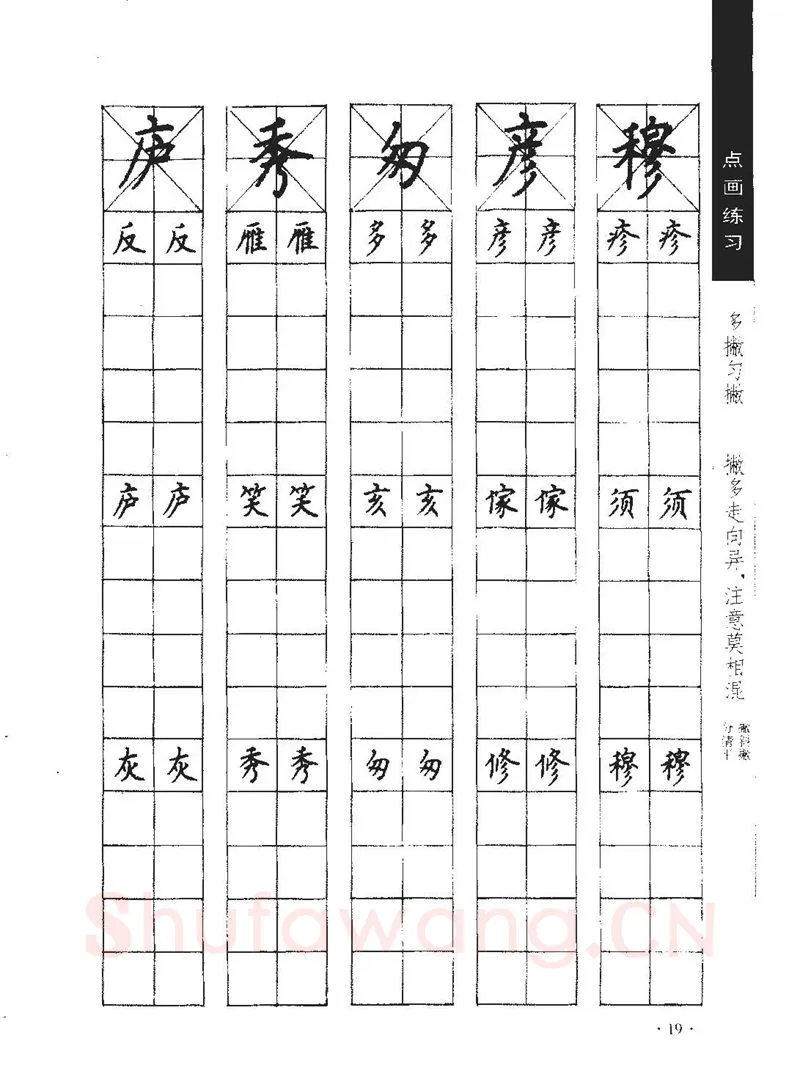 点画练习
多撇匀撇 撇多走向异,注意莫相混
穆 彦 匆 秀 庐
疹 疹 彦 彦 多 多 雁 雁 反 反
须 须 傢 傢 亥 亥 笑 笑 庐 庐
穆 穆 修 修 匆 匆 秀 秀 灰 灰
Shufawang.CN
·19·